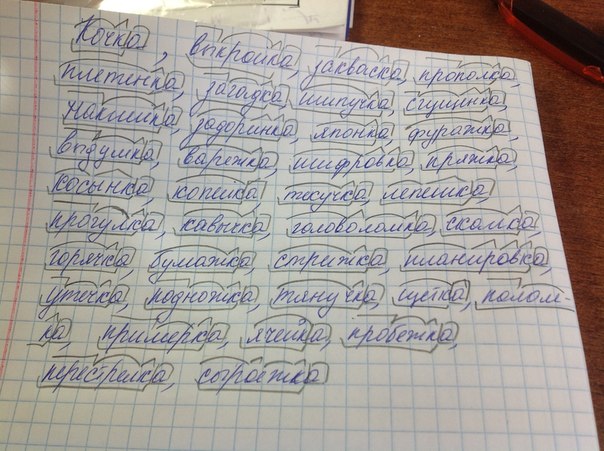 Кочка, выкройка, закваска, прополка,
плетёнка, загадка, шипучка, сгущёнка,
накипка, задоринка, японка, фуражка,
выдумка, варежка, шифровка, пряжка,
косынка, копейка, жгучка, лепёшка,
прогулка, кавычка, головоломка, скамка
горячка, бумажка, стрижка, планировка,
утечка, подножка, тянучка, щётка, полом-
ка, примерка, ячейка, пробежка,
перестрелка, сыроежка